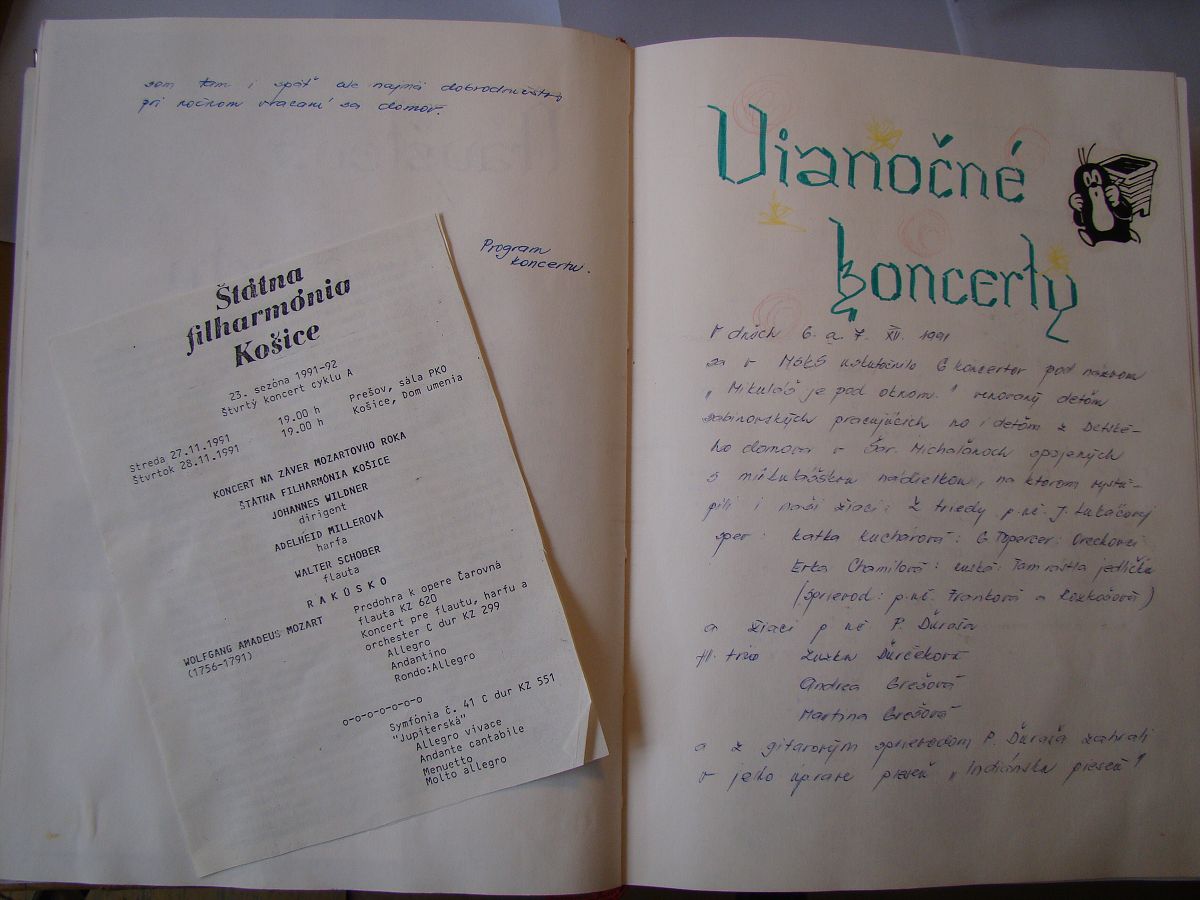 som tam i späť ale najmä dobrodružstvo
pri nočnom vracaní sa domov.
Program
koncertu.
Štátna
filharmónia
Košice
23. sezóna 1991-92
Štvrtý koncert cyklu A
Streda 27.11.1991 19.00 h Prešov, sála PKO
Štvrtok 28.11.1991 19.00 h Košice, Dom umenia
KONCERT NA ZÁVER MOZARTOVHO ROKA
ŠTÁTNA FILHARMÓNIA KOŠICE
JOHANNES WILDNER
dirigent
ADELHEID MILLEROVÁ
harfa
WALTER SCHOBER
flauta
R A K Ú S K O
WOLFGANG AMADEUS MOZART
(1756-1791)
Predohra k opere Čarovná
flauta KZ 620
Koncert pre flautu, harfu a
orchester C dur KZ 299
Allegro
Andantino
Rondo:Allegro
o-o-o-o-o-o-o
Symfónia č. 41 C dur KZ 551
"Jupiterská"
Allegro vivace
Andante cantabile
Menuetto
Molto allegro
Vianočné
koncerty
V dňoch 6. a 7. XII. 1991
sa v MsKS uskutočnilo 6 koncertov pod názvom
„Mikuláš je pod oknom" venovaný deťom
sabinovských pracujúcich no i deťom z Detské-
ho domova v Šar. Michaľanoch spojených
s mikulášskou nádielkou, na ktorom vystú-
pili i naši žiaci: Z triedy p. uč. J. Lukáčovej
spev: Katka Kuchárová: G. Topercer:
Erka Chamilová: ruská: Tam rástla jedlička
(Sprievod: p. uč. Franková a Rozkošová)
a žiaci p. uč. P. Ďuraša
fl. trio Zuzka Ďurčeková
Andrea Grešová
Martina Grešová
a z gitarovým sprievodom P. Ďuraša zahrali
v jeho úprave pieseň „Indiánska pieseň"